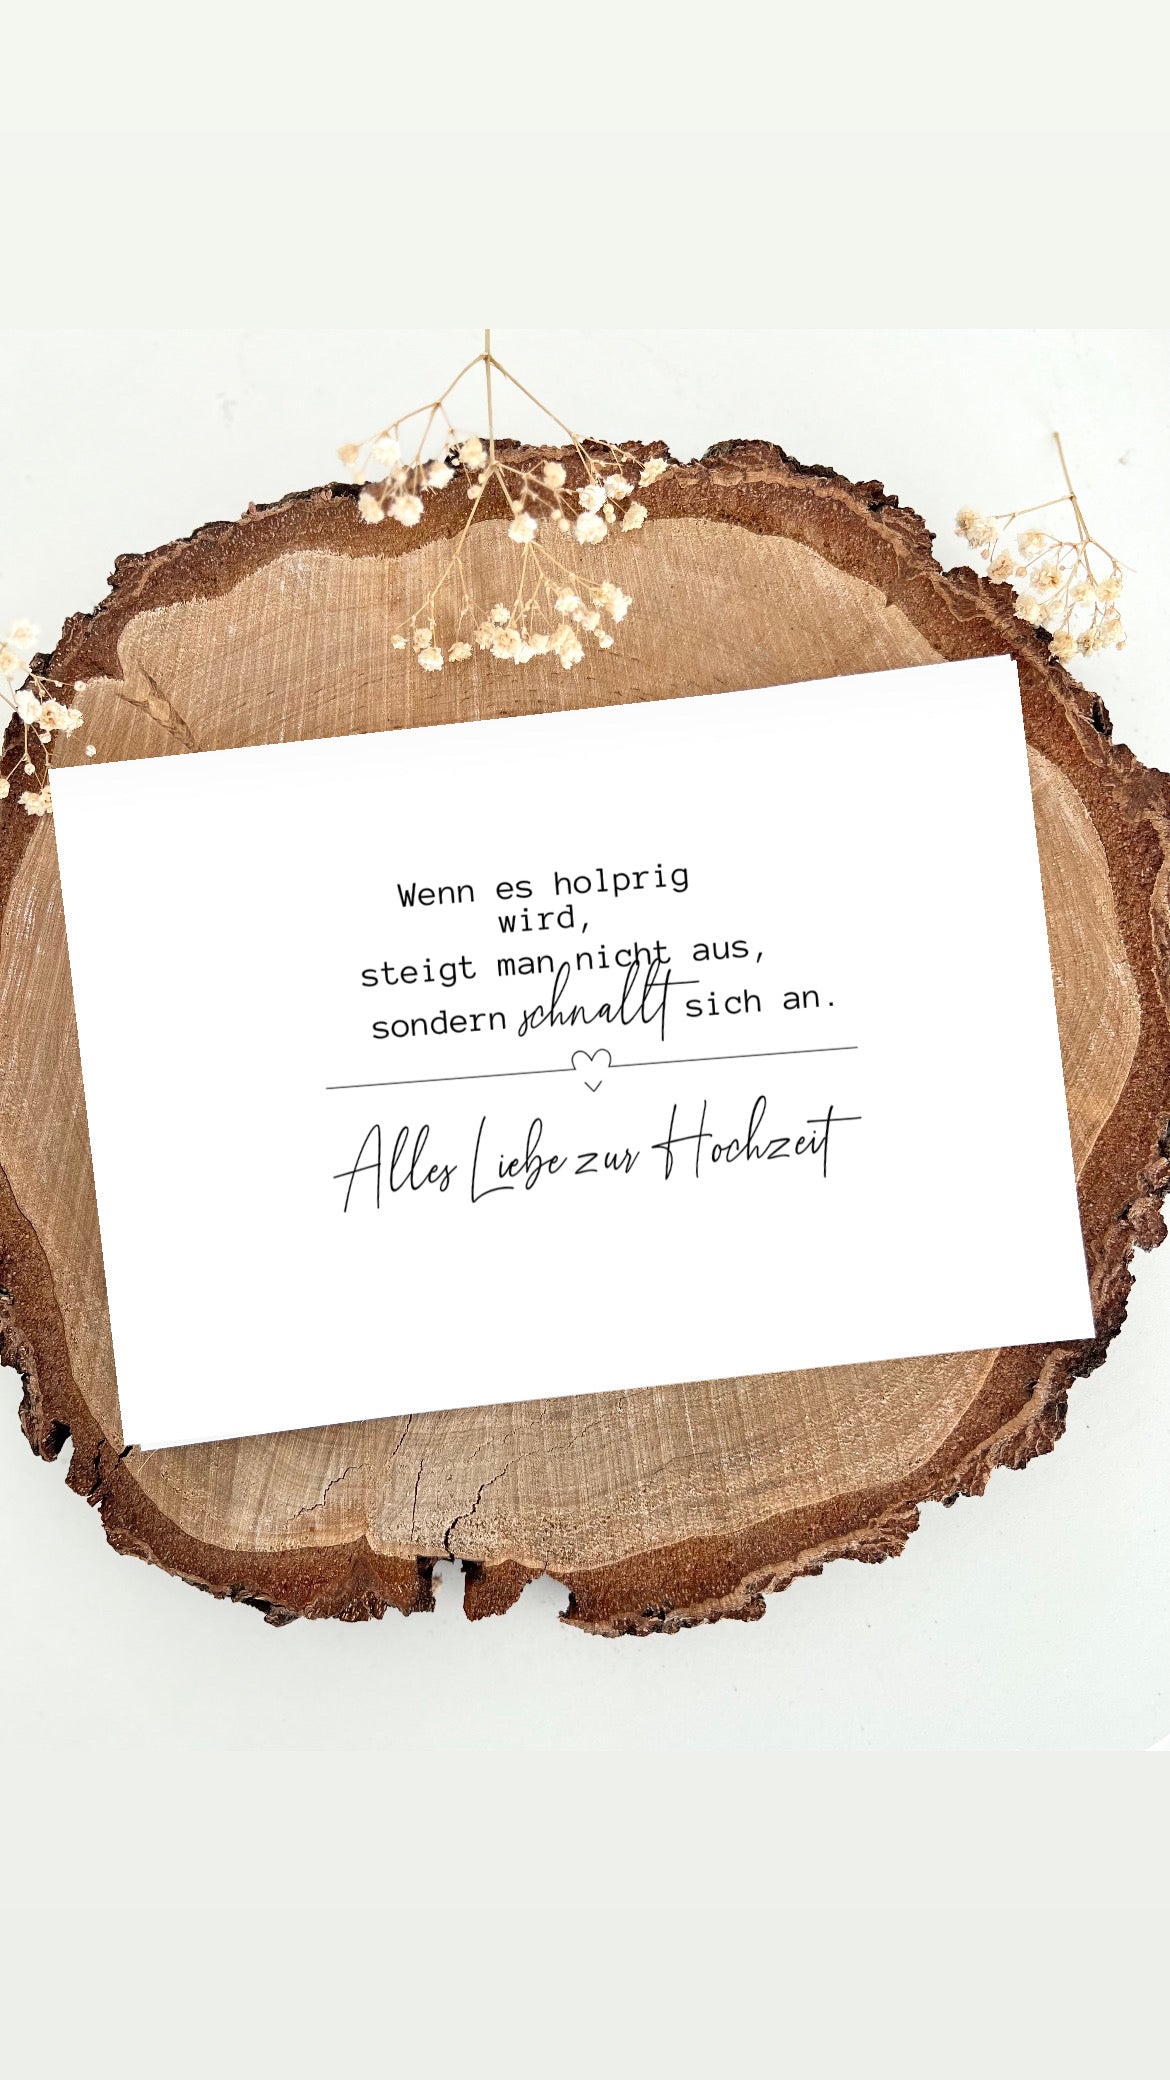 Wenn es holprig
wird,
steigt man nicht aus,
sondern schnallt sich an.
Alles Liebe zur Hochzeit